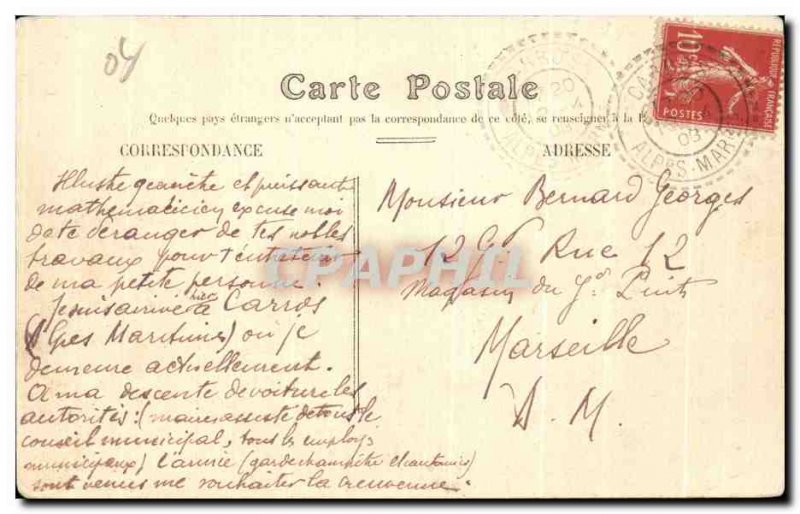 04
Carte Postale
Quelques pays étrangers n'acceptant pas la correspondance de ce côté, se renseigner à la
CORRESPONDANCE
ADRESSE
10c
REPUBLIQUE FRANÇAISE
POSTES
20
09
ALPES-MAR
CPAPHIL
Illustre et puissant
mathematicien excuse moi
de te deranger de tes nobles
travaux pour t'entretenir
de ma petite personne.
Je suis arrivé hier à Carros
(Alpes Maritimes) où je
demeure actuellement.
A ma descente de voiture les
autorités: (maire assisté de tous le
conseil municipal, tous les employés
municipaux) l'armée (garde champêtre et cantonnier)
sont venus me souhaiter la
Monsieur Bernard Georges
12 Rue 12
Magasin du
Marseille